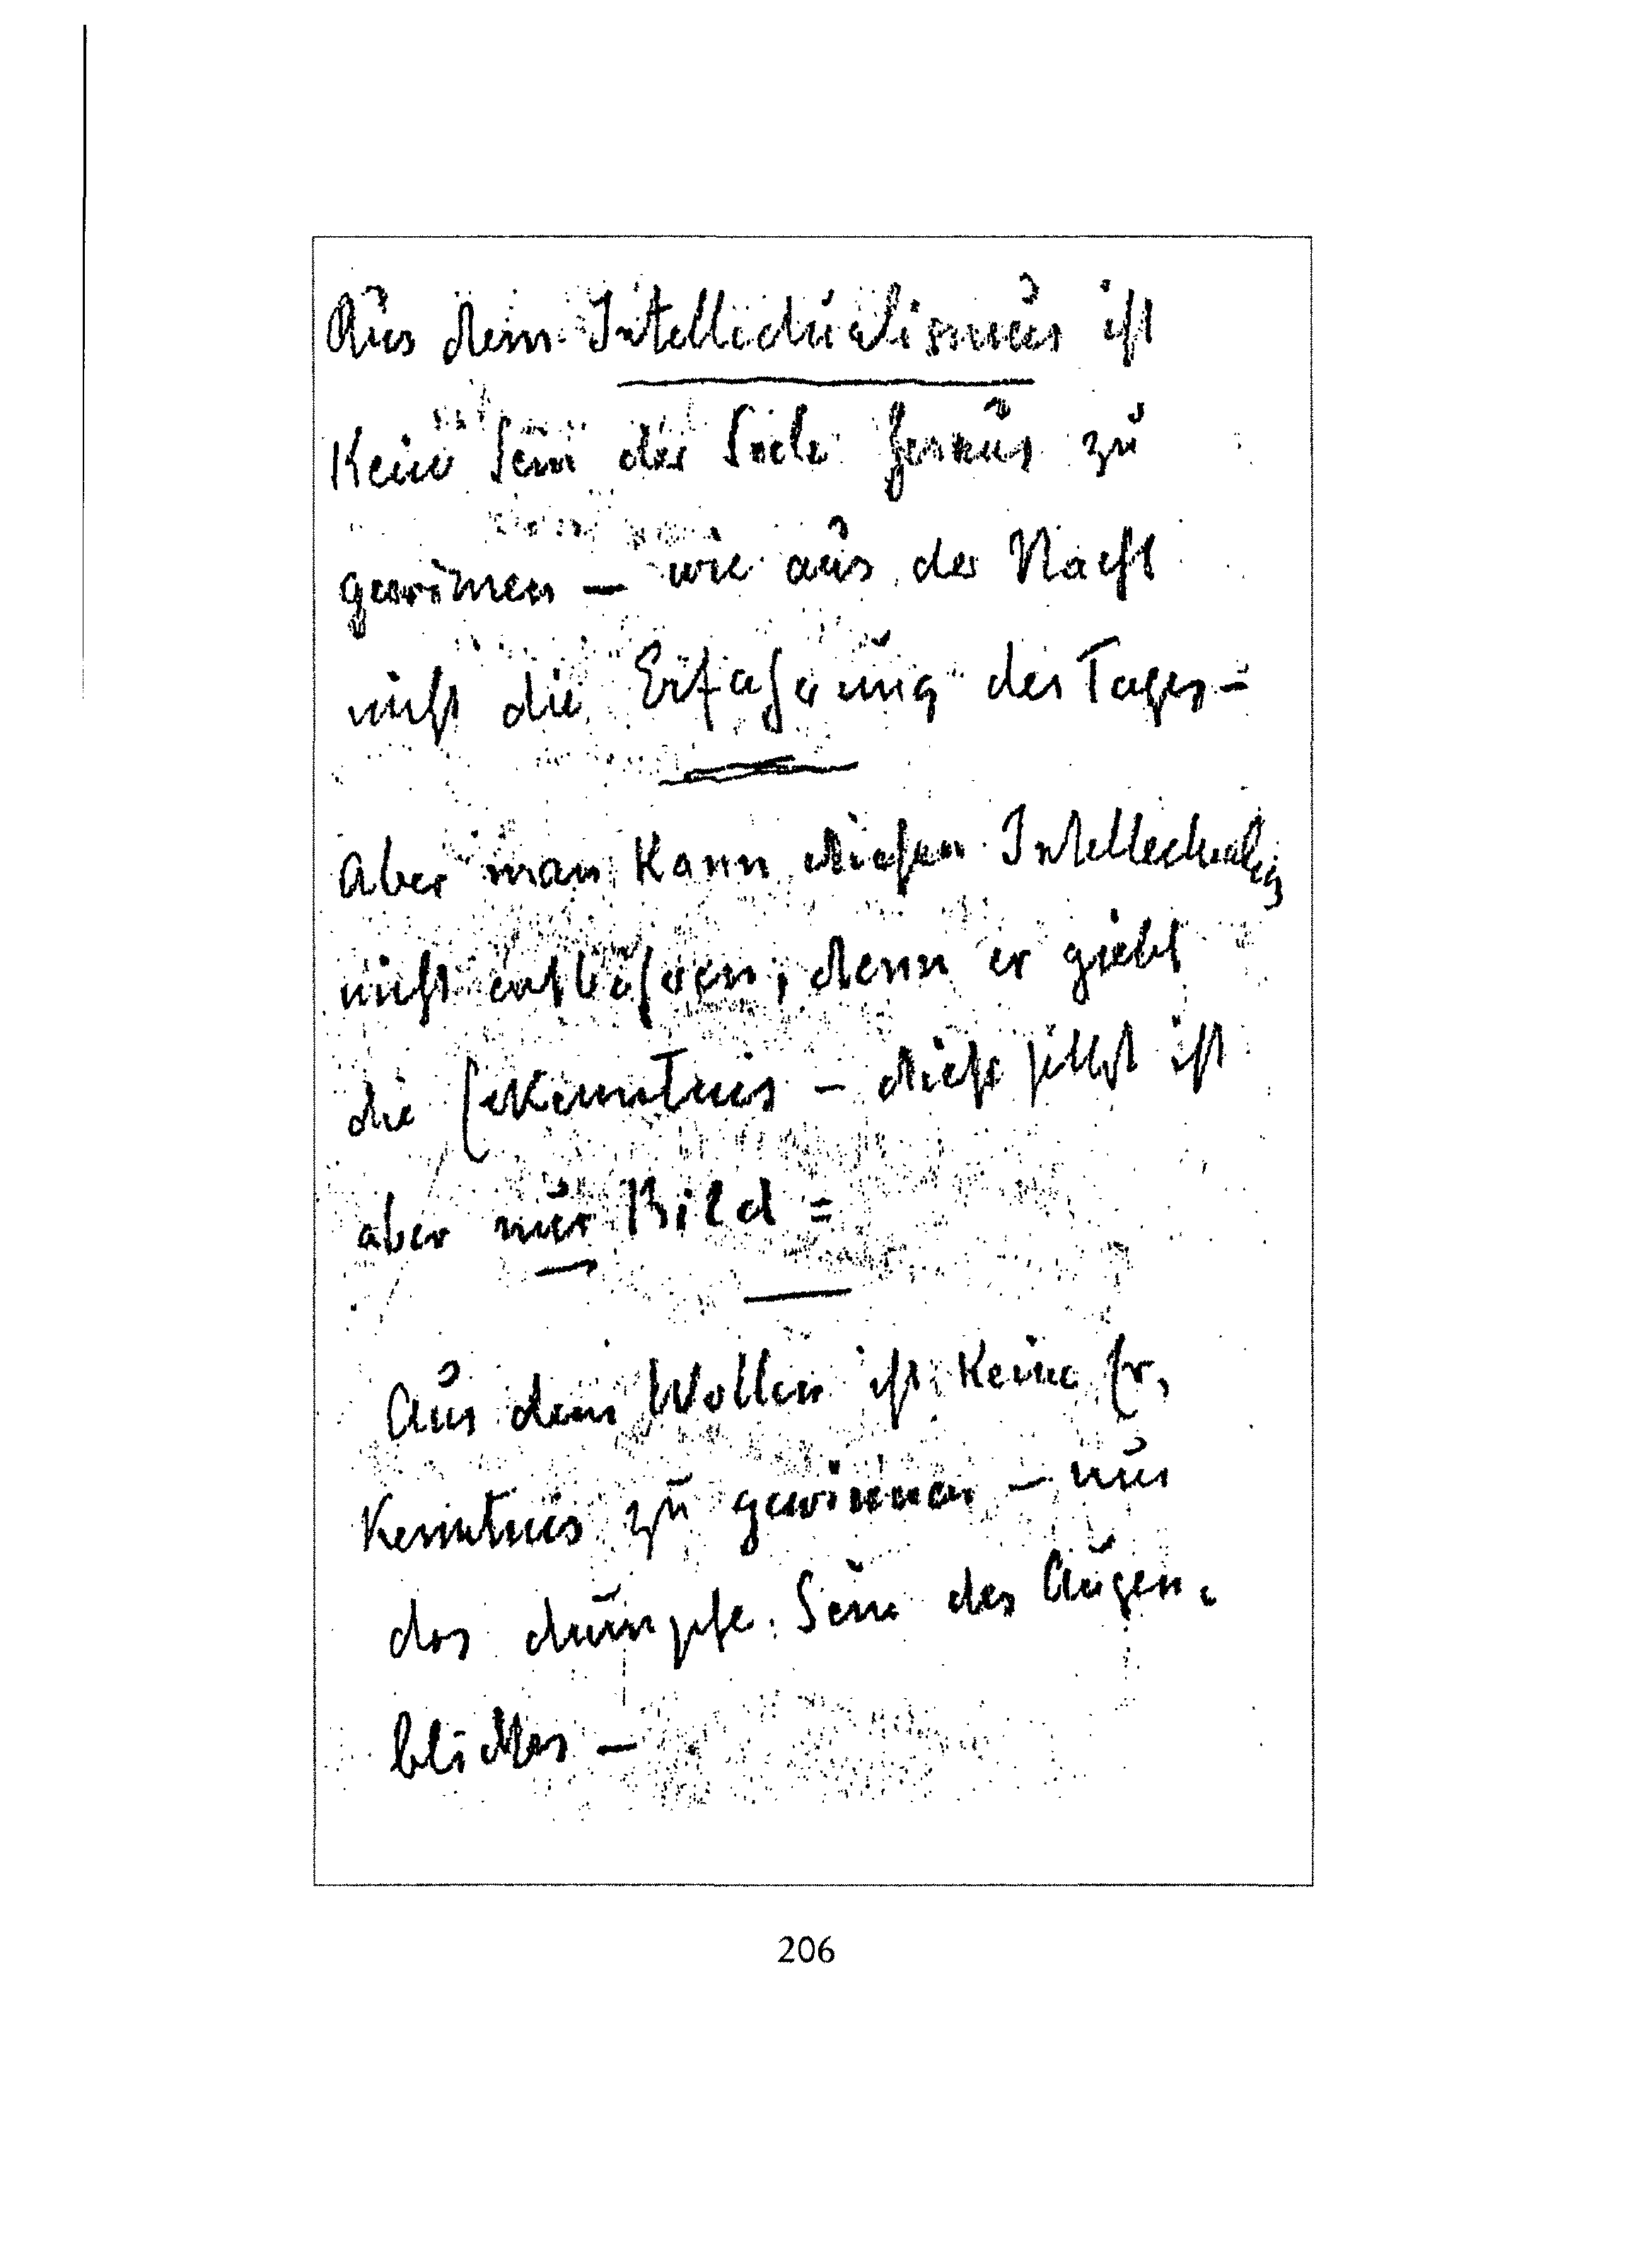 Aus dem Intellectualismus ist
kein Sein der Seele heraus zu
gewinnen – wie aus der Nacht
nicht die Erfahrung des Tages –
Aber man kann diesen Intellectualis
nicht entbehren; denn er giebt
die Erkenntnis – diese selbst ist
aber nur Bild =
Aus dem Wollen ist keine Er,
kenntnis zu gewinnen – nur
das dumpfe Sein des Augen,
blickes –
206